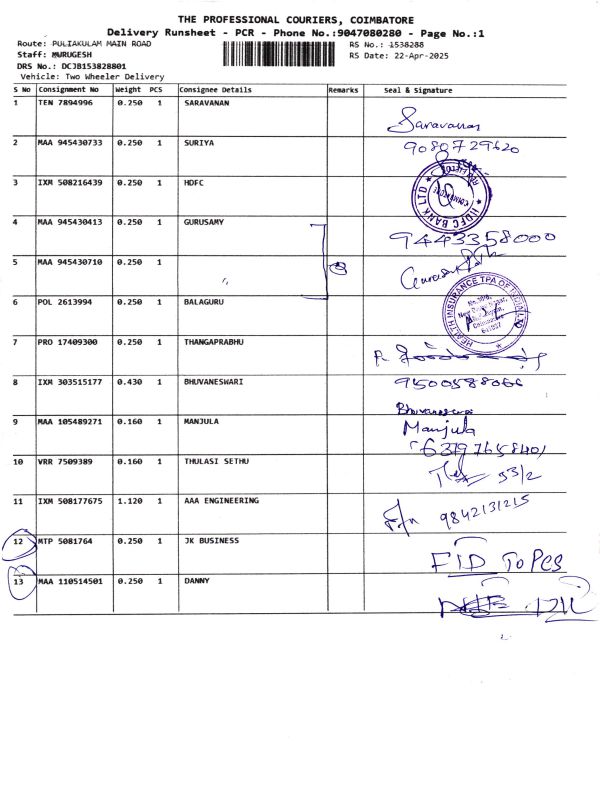 THE PROFESSIONAL COURIERS, COIMBATORE
Delivery Runsheet - PCR - Phone No.:9047080280 - Page No.:1
Route: PULIAKULAM MAIN ROAD RS No.: 1538288
Staff: MURUGESH RS Date: 22-Apr-2025
DRS No.: DCJB153828801
Vehicle: Two Wheeler Delivery
S No Consignment No Weight PCS Consignee Details Remarks Seal & Signature
1 TEN 7894996 0.250 1 SARAVANAN
Saravanan
2 MAA 945430733 0.250 1 SURIYA 9080729620
3 IXM 508216439 0.250 1 HDFC
HDFC BANK LTD
4 MAA 945430413 0.250 1 GURUSAMY 9443358000
5 MAA 945430710 0.250 1 "
6 POL 2613994 0.250 1 BALAGURU
HEALTH INSURANCE TPA OF INDIA LTD
7 PRO 17409300 0.250 1 THANGAPRABHU
8 IXM 303515177 0.430 1 BHUVANESWARI 9500588066
Bhuvaneswari
9 MAA 105489271 0.160 1 MANJULA Manjula
6379765840/
10 VRR 7509389 0.160 1 THULASI SETHU 53/2
11 IXM 508177675 1.120 1 AAA ENGINEERING 9842131215
12 MTP 5081764 0.250 1 JK BUSINESS FID To PCS
13 MAA 110514501 0.250 1 DANNY